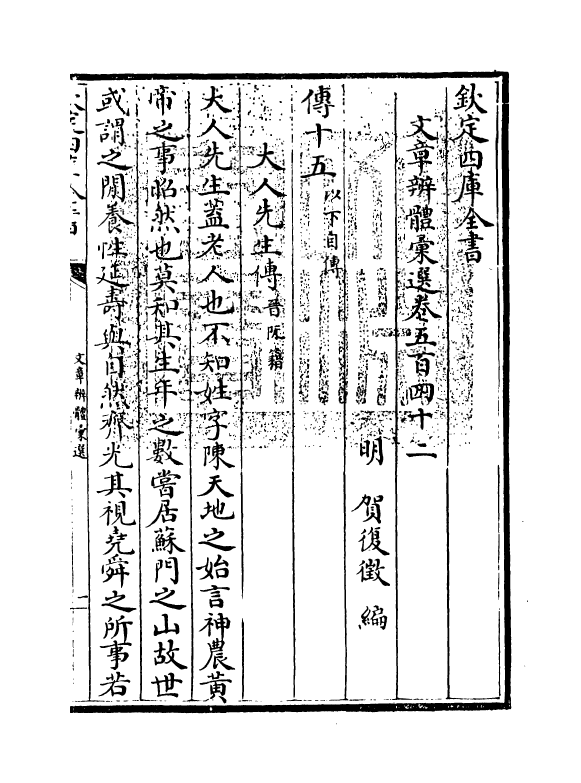 欽定四庫全書
文章辨體彚選卷五百四十二
明 賀復徵 編
傳十五以下自傳
大人先生傳晉阮籍
大人先生蓋老人也不知姓字陳天地之始言神農黃
帝之事昭然也莫知其生年之數嘗居蘇門之山故世
或謂之閑養性延壽與自然齊光其視堯舜之所事若
文章辨體彚選
一